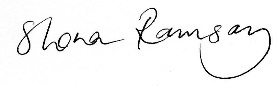 Shona Ramsay